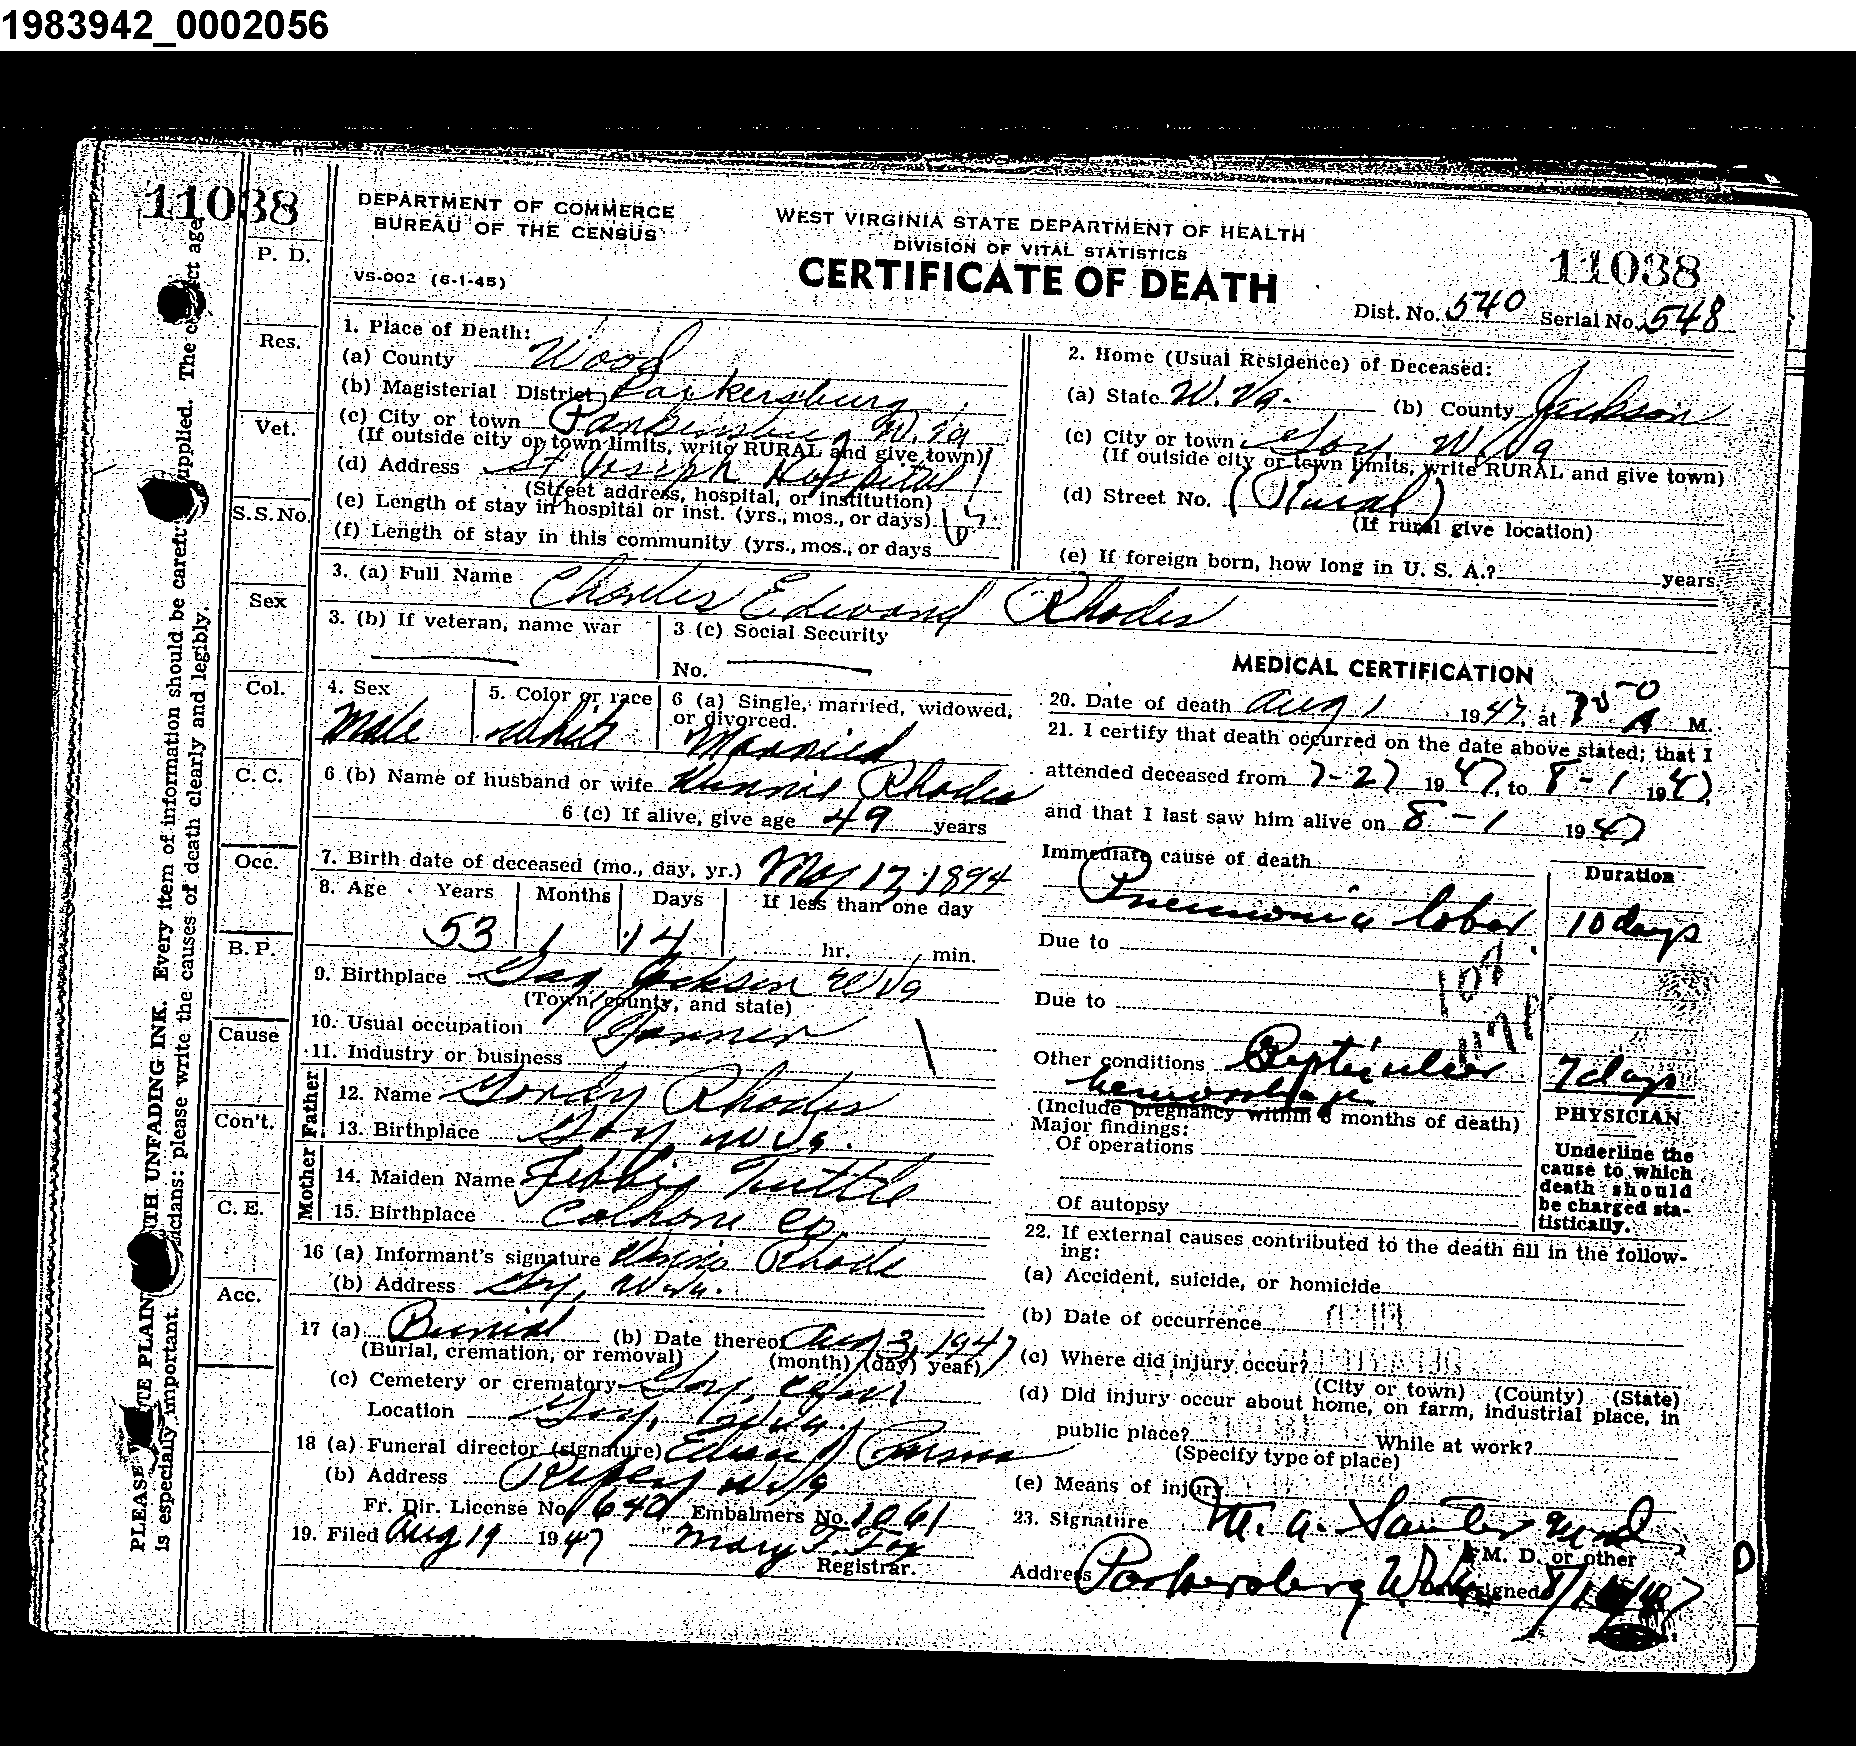 1983942_0002056
11038
DEPARTMENT OF COMMERCE
BUREAU OF THE CENSUS
VS-002 (6-1-45)
WEST VIRGINIA STATE DEPARTMENT OF HEALTH
DIVISION OF VITAL STATISTICS
CERTIFICATE OF DEATH
11038
Dist. No. 540 Serial No. 548
P. D.
Res.
Vet.
S.S.No.
Sex
Col.
C. C.
Occ.
B. P.
Cause
Con't.
C. E.
Acc.
PLEASE PLAIN TH UNFADING INK. Every item of information should be caref supplied. The ct age
is especially important. icians: please write the causes of death clearly and legibly.
1. Place of Death:
(a) County Wood
(b) Magisterial District Parkersburg
(c) City or town Parkersburg W. Va
(If outside city or town limits, write RURAL and give town)
(d) Address St Joseph Hospital
(Street address, hospital, or institution)
(e) Length of stay in hospital or inst. (yrs., mos., or days)
(f) Length of stay in this community (yrs., mos., or days
2. Home (Usual Residence) of Deceased:
(a) State W. Va. (b) County Jackson
(c) City or town Gay W Va
(If outside city or town limits, write RURAL and give town)
(d) Street No. (Rural)
(If rural give location)
(e) If foreign born, how long in U. S. A.? years
3. (a) Full Name Charles Edward Rhodes
3. (b) If veteran, name war
3 (c) Social Security
No.
4. Sex Male
5. Color or race White
6 (a) Single, married, widowed, or divorced. Married
6 (b) Name of husband or wife Rhodes
6 (c) If alive, give age 49 years
7. Birth date of deceased (mo., day, yr.) May 17, 1894
8. Age Years Months Days If less than one day
53 1 14 hr. min.
9. Birthplace Gay Jackson W Va
(Town, county, and state)
10. Usual occupation Farmer
11. Industry or business
Father
12. Name Gordy Rhodes
13. Birthplace Gay, W Va.
Mother
14. Maiden Name Tuttle
15. Birthplace Calhone Co
16 (a) Informant's signature Rhode
(b) Address Gay, W. Va.
17 (a) Burial (b) Date thereof Aug 3, 1947
(Burial, cremation, or removal) (month) (day) year)
(c) Cemetery or crematory Gay,
Location Gay, W. Va.
18 (a) Funeral director (signature)
(b) Address Ripley W Va
Fr. Dir. License No. 640 Embalmers No. 1061
19. Filed Aug 19 1947 Mary F. Fox
Registrar.
MEDICAL CERTIFICATION
20. Date of death Aug 1 1947, at 7 50 A M.
21. I certify that death occurred on the date above stated; that I
attended deceased from 7-27 1947, to 8-1 1947,
and that I last saw him alive on 8-1 1947
Immediate cause of death
Duration
Pneumonia lobar 10 days
Due to
Due to
Other conditions 7 days
hemorrhage
(Include pregnancy within 6 months of death)
Major findings:
Of operations
Of autopsy
PHYSICIAN
Underline the
cause to which
death should
be charged sta-
tistically.
22. If external causes contributed to the death fill in the follow-
ing:
(a) Accident, suicide, or homicide
(b) Date of occurrence
(c) Where did injury occur?
(City or town) (County) (State)
(d) Did injury occur about home, on farm, industrial place, in
public place? While at work?
(Specify type of place)
(e) Means of injury
23. Signature M. A. Santer M.D.
M. D. or other
Address Parkersburg W. Va. signed